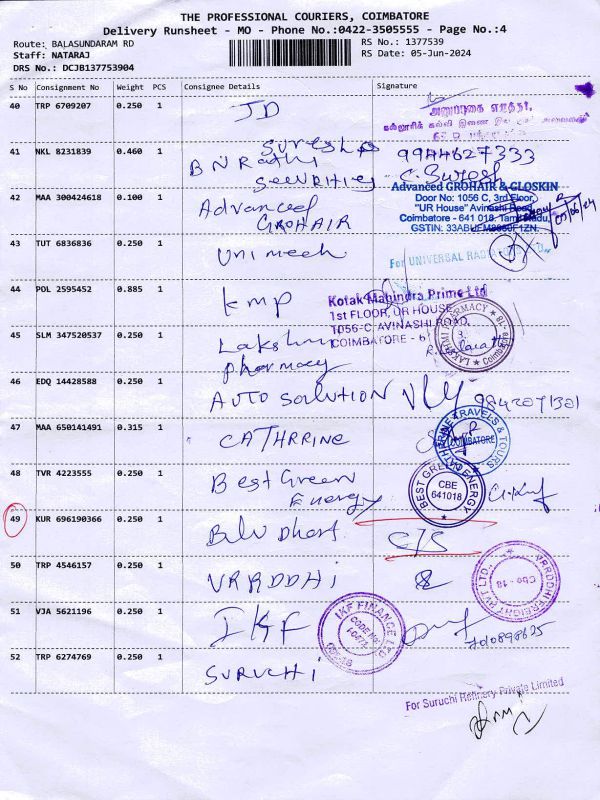 THE PROFESSIONAL COURIERS, COIMBATORE
Delivery Runsheet - MO - Phone No.:0422-3505555 - Page No.:4
Route: BALASUNDARAM RD
Staff: NATARAJ
DRS No.: DCJB137753904
RS No.: 1377539
RS Date: 05-Jun-2024
S No Consignment No Weight PCS Consignee Details Signature
40 TRP 6709207 0.250 1 JD
41 NKL 8231839 0.460 1 Suresh
BN Rathi
Securities
9944627333
C. Suresh
42 MAA 300424618 0.100 1 Advanced
GROHAIR
Advanced GROHAIR & GLOSKIN
Door No: 1056 C, 3rd Floor,
"UR House" Avinashi Road,
Coimbatore - 641 018, Tamil Nadu,
05/06/24
43 TUT 6836836 0.250 1 Uni mech
For UNIVERSAL
44 POL 2595452 0.885 1 kmp
Kotak Mahindra Prime Ltd
1st FLOOR, UR HOUSE
1056-C, AVINASHI ROAD,
COIMBATORE - 6
45 SLM 347520537 0.250 1 Lakshmi
pharmacy
LAKSHMI PHARMACY
46 EDQ 14428588 0.250 1 AUTO Solution
47 MAA 650141491 0.315 1 CATHRRINE
TRAVELS & TOURS
COIMBATORE
48 TVR 4223555 0.250 1 Best Green
Energy
BEST GREEN ENERGY
CBE
641018
49 KUR 696190366 0.250 1 Blu Dhart
C/S
50 TRP 4546157 0.250 1 VRRDDHI
VRRDDHI FREIGHT PVT LTD
Cbe - 18
51 VJA 5621196 0.250 1 IKF
IKF FINANCE LTD
CODE No:
52 TRP 6274769 0.250 1 SURUCHI
For Suruchi Refinery Private Limited